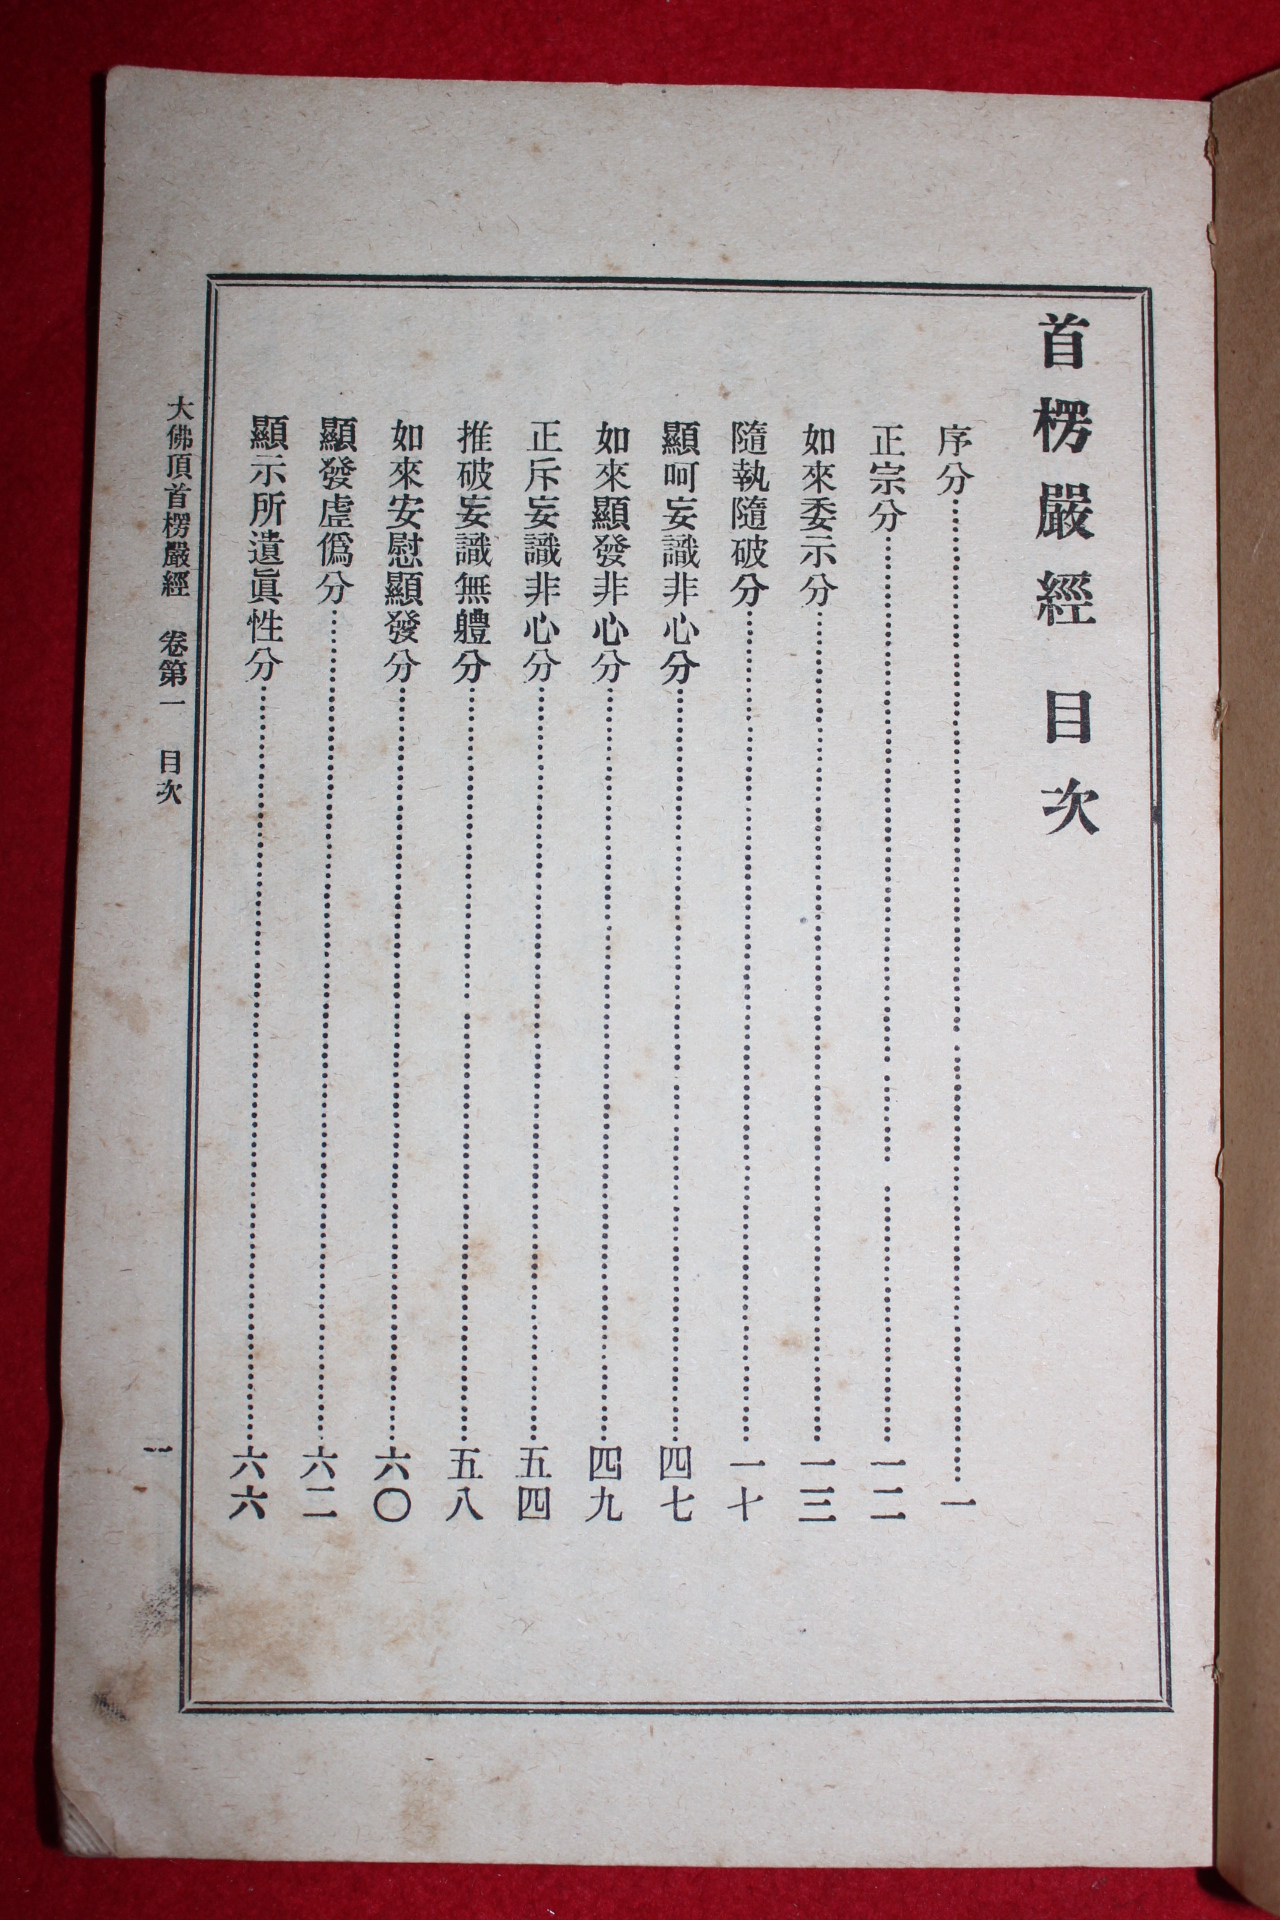 首楞嚴經 目次
序分……一
正宗分……一二
如來委示分……一三
隨執隨破分……一十
顯呵妄識非心分……四七
如來顯發非心分……四九
正斥妄識非心分……五四
推破妄識無體分……五八
如來安慰顯發分……六〇
顯發虛僞分……六二
顯示所遺眞性分……六六
大佛頂首楞嚴經 卷第一 目次